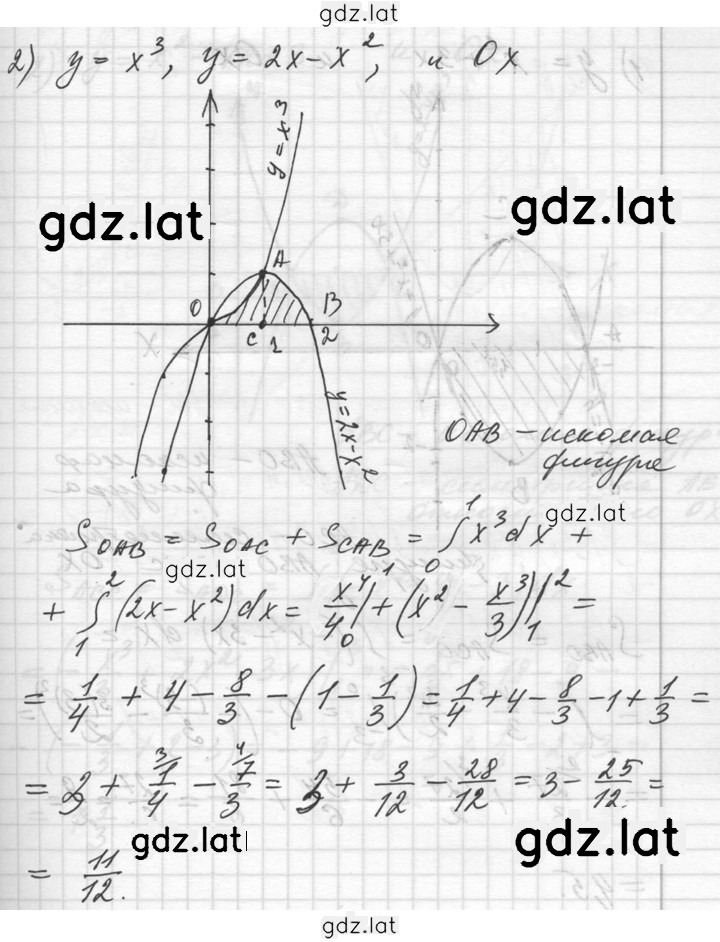 gdz.lat
2) y = x³, y = 2x - x², и Ox
y = x³
gdz.lat
gdz.lat
A
O
B
C 1
2
y = 2x - x²
OAB - искомая
фигура
gdz.lat
S_OAB = S_OAC + S_CAB = ∫₀¹ x³ dx +
gdz.lat
+ ∫₁² (2x - x²) dx = x⁴/4 |₀¹ + (x² - x³/3) |₁² =
= 1/4 + 4 - 8/3 - (1 - 1/3) = 1/4 + 4 - 8/3 - 1 + 1/3 =
= 3 + ³⁄1/4 - ⁴⁄7/3 = 3 + 3/12 - 28/12 = 3 - 25/12 =
gdz.lat
gdz.lat
= 11/12.
gdz.lat